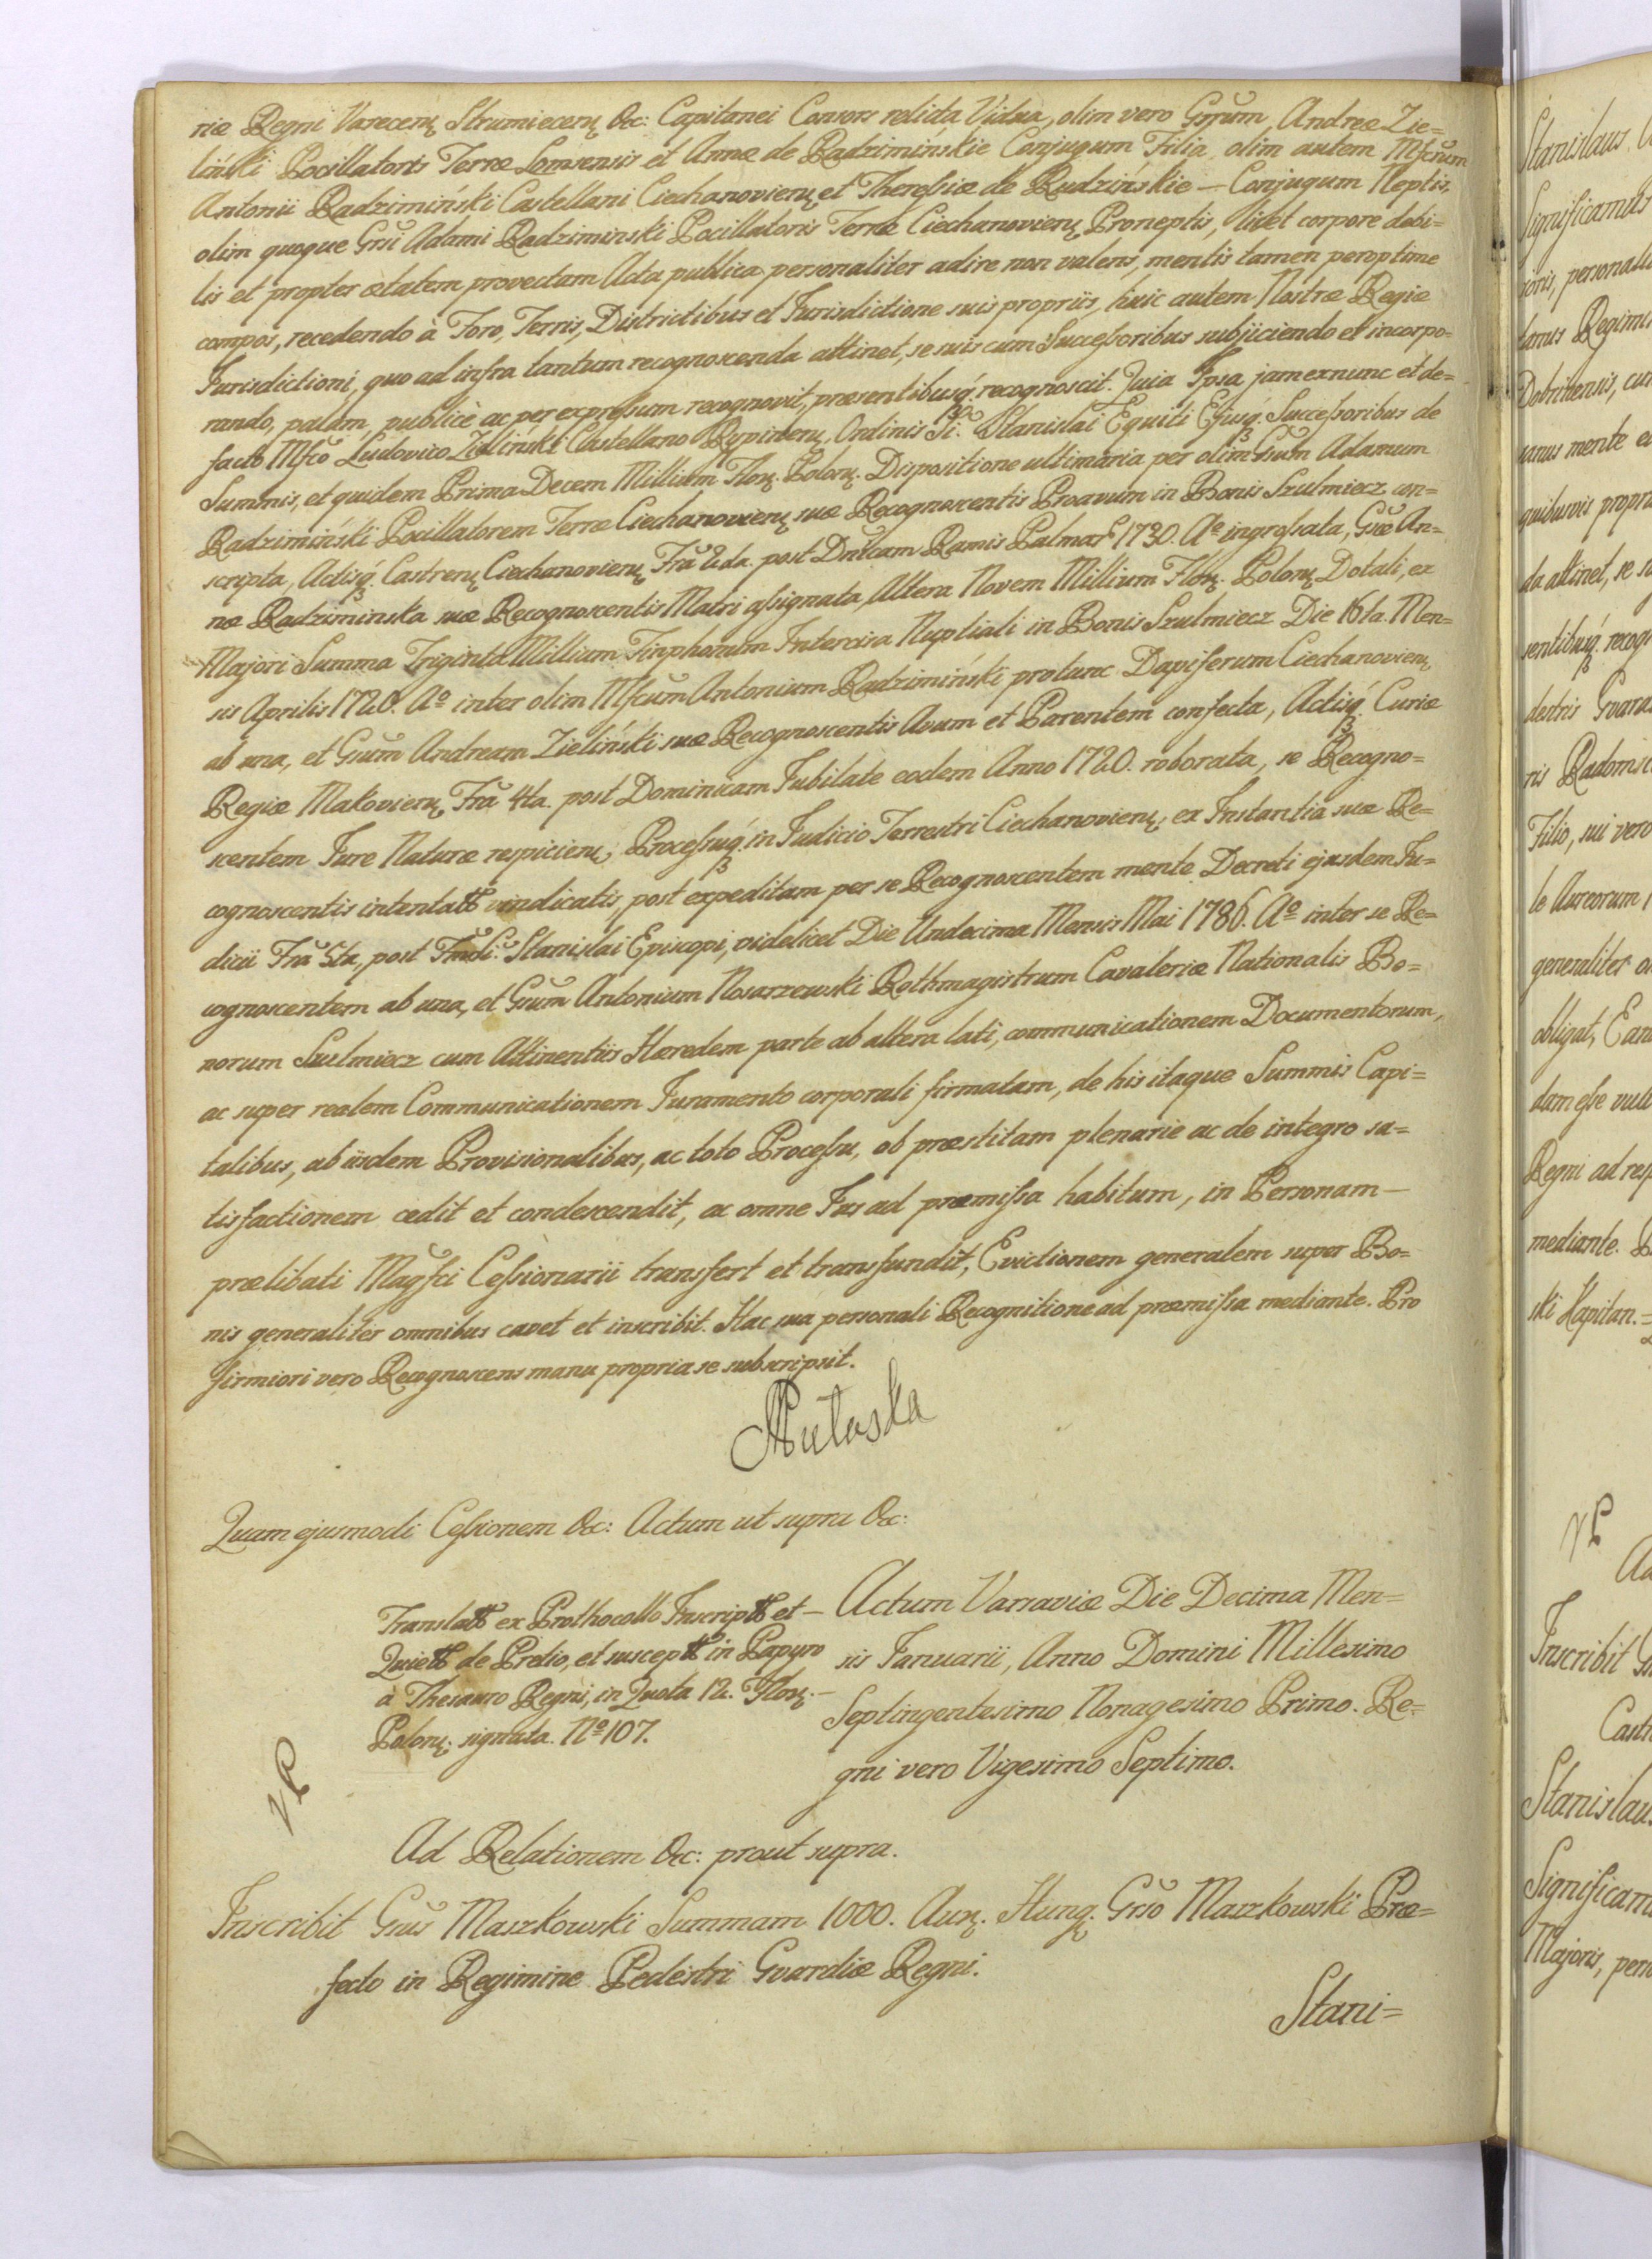 riæ Regni Varecen, Strumiecen, &c: Capitanei Consors relicta Vidua, olim vero Grum Andreæ Zie=
liński Pocillatoris Terræ Lomzensis et Annæ de Radzimińskie Conjugum Filia, olim autem Mfcrum
Antonii Radzimiński Castellani Ciechanovien, et Theressiæ de Rudzińskie – Conjugum Neptis,
olim quoque Grsi Adami Radziminski Pocillatoris Terræ Ciechanovien, Proneptis, licet corpore debi=
lis et propter ætatem provectam Acta publica personaliter adire non valens, mentis tamen peroptime
compos, recedendo à Foro, Terris, Districtibus et Jurisdictione suis propriis, huic autem Nostræ Regiæ
Jurisdictioni, quo ad infra tantum recognoscenda attinet, se suis cum Successoribus subjiciendo et incorpo=
rando, palam, publicè ac per expressum recognovit, præsentibusq. recognoscit. Quia Ipsa jam exnunc et de=
facto Mfco Ludovico Zieliński Castellano Rypinen, Ordinis Sti. Stanislai Equiti Ejusq. Successoribus de
Summis, et quidem Prima Decem Millium Flor. Polon. Dispositione ultimaria per olim Grum Adamum
Radzimiński Pocillatorem Terræ Ciechanovien, suæ Recognoscentis Proavum in Bonis Szulmierz con=
scripta, Actisq. Castren, Ciechanovien, Fra 2da. post Dnicam Ramis Palmar 1730. Ao ingrossata, Græ An=
næ Radziminska suæ Recognoscentis Matri assignata, Altera Novem Millium Flor. Polon, Dotali, ex
Majori Summa Triginta Millium Tinphorum Intercisa Nuptiali in Bonis Szulmierz Die 16ta. Men=
sis Aprilis 1720. Ao inter olim Mfcum Antonium Radzimiński protunc Dapiferum Ciechanovien,
ab una, et Grum Andream Zieliński suæ Recognoscentis Avum et Parentem confecta, Actisq. Curiæ
Regiæ Makovien, Fra 4ta. post Dominicam Jubilate eodem Anno 1720. roborata, se Recogno=
scentem Jure Naturæ respicien, Processuq. in Judicio Terrestri Ciechanovien, ex Instantia suæ Re=
cognoscentis intentato vindicatis, post expeditam per se Recognoscentem mente Decreti ejusdem Ju=
dicii Fra 5ta, post Sti. Stanislai Episcopi, videlicet Die Undecima Mensis Mai 1786. Ao inter se Re=
cognoscentem ab una, et Grum Antonium Nosarzewski Rothmagistrum Cavaleriæ Nationalis Bo=
norum Szulmierz cum Attinentiis Hæredem parte ab altera lati, communicationem Documentorum,
ac super realem Communicationem Juramento corporali firmatam, de his itaque Summis Capi=
talibus, ab iisdem Provisionalibus, ac toto Processu, ob præstitam plenarie ac de integro sa=
tisfactionem cedit et condescendit, ac omne Jus ad præmissa habitum, in Personam –
prælibati Magfci Cessionarii transfert et transfundit, Evictionem generalem super Bo=
nis generaliter omnibus cavet et inscribit. Hac sua personali Recognitione ad præmissa mediante. Pro
firmiori vero Recognoscens manu propria se subscripsit.
Quam ejusmodi Cessionem &c: Actum ut supra &c:
Translat ex Prothocollo Inscript et –
Quiet de Predio, et suscept in Papyro
à Thesauro Regni, in Quota 12. Flor. –
Polon, signata. No 107.
Actum Varsaviæ Die Decima Men=
sis Januarii, Anno Domini Millesimo
Septingentesimo Nonagesimo Primo. Re=
gni vero Vigesimo Septimo.
Ad Relationem &c: prout supra.
Inscribit Grus Maszkowski Summam 1000. Aur. Hung. Grso Maszkowski Præ=
fecto in Regimine Pedestri Gvardiæ Regni.
Stani=